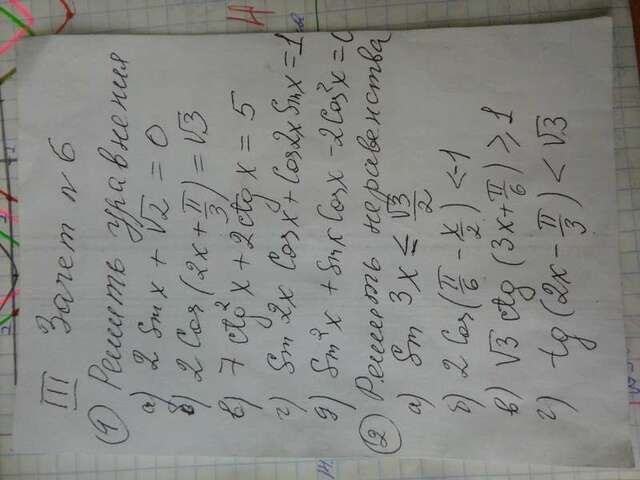 III Зачет N 6
① Решить уравнения
а) 2 Sin x + √2 = 0
б) 2 Cos (2x + π/3) = √3
в) 7 ctg² x + 2 ctg x = 5
г) Sin 2x Cos x + Cos 2x Sin x = 1
д) Sin² x + Sin x Cos x - 2 Cos² x = 0
② Решить неравенства
а) Sin 3x ≤ √3/2
б) 2 Cos (π/6 - x/2) < -1
в) √3 ctg (3x + π/6) ≥ 1
г) tg (2x - π/3) < √3